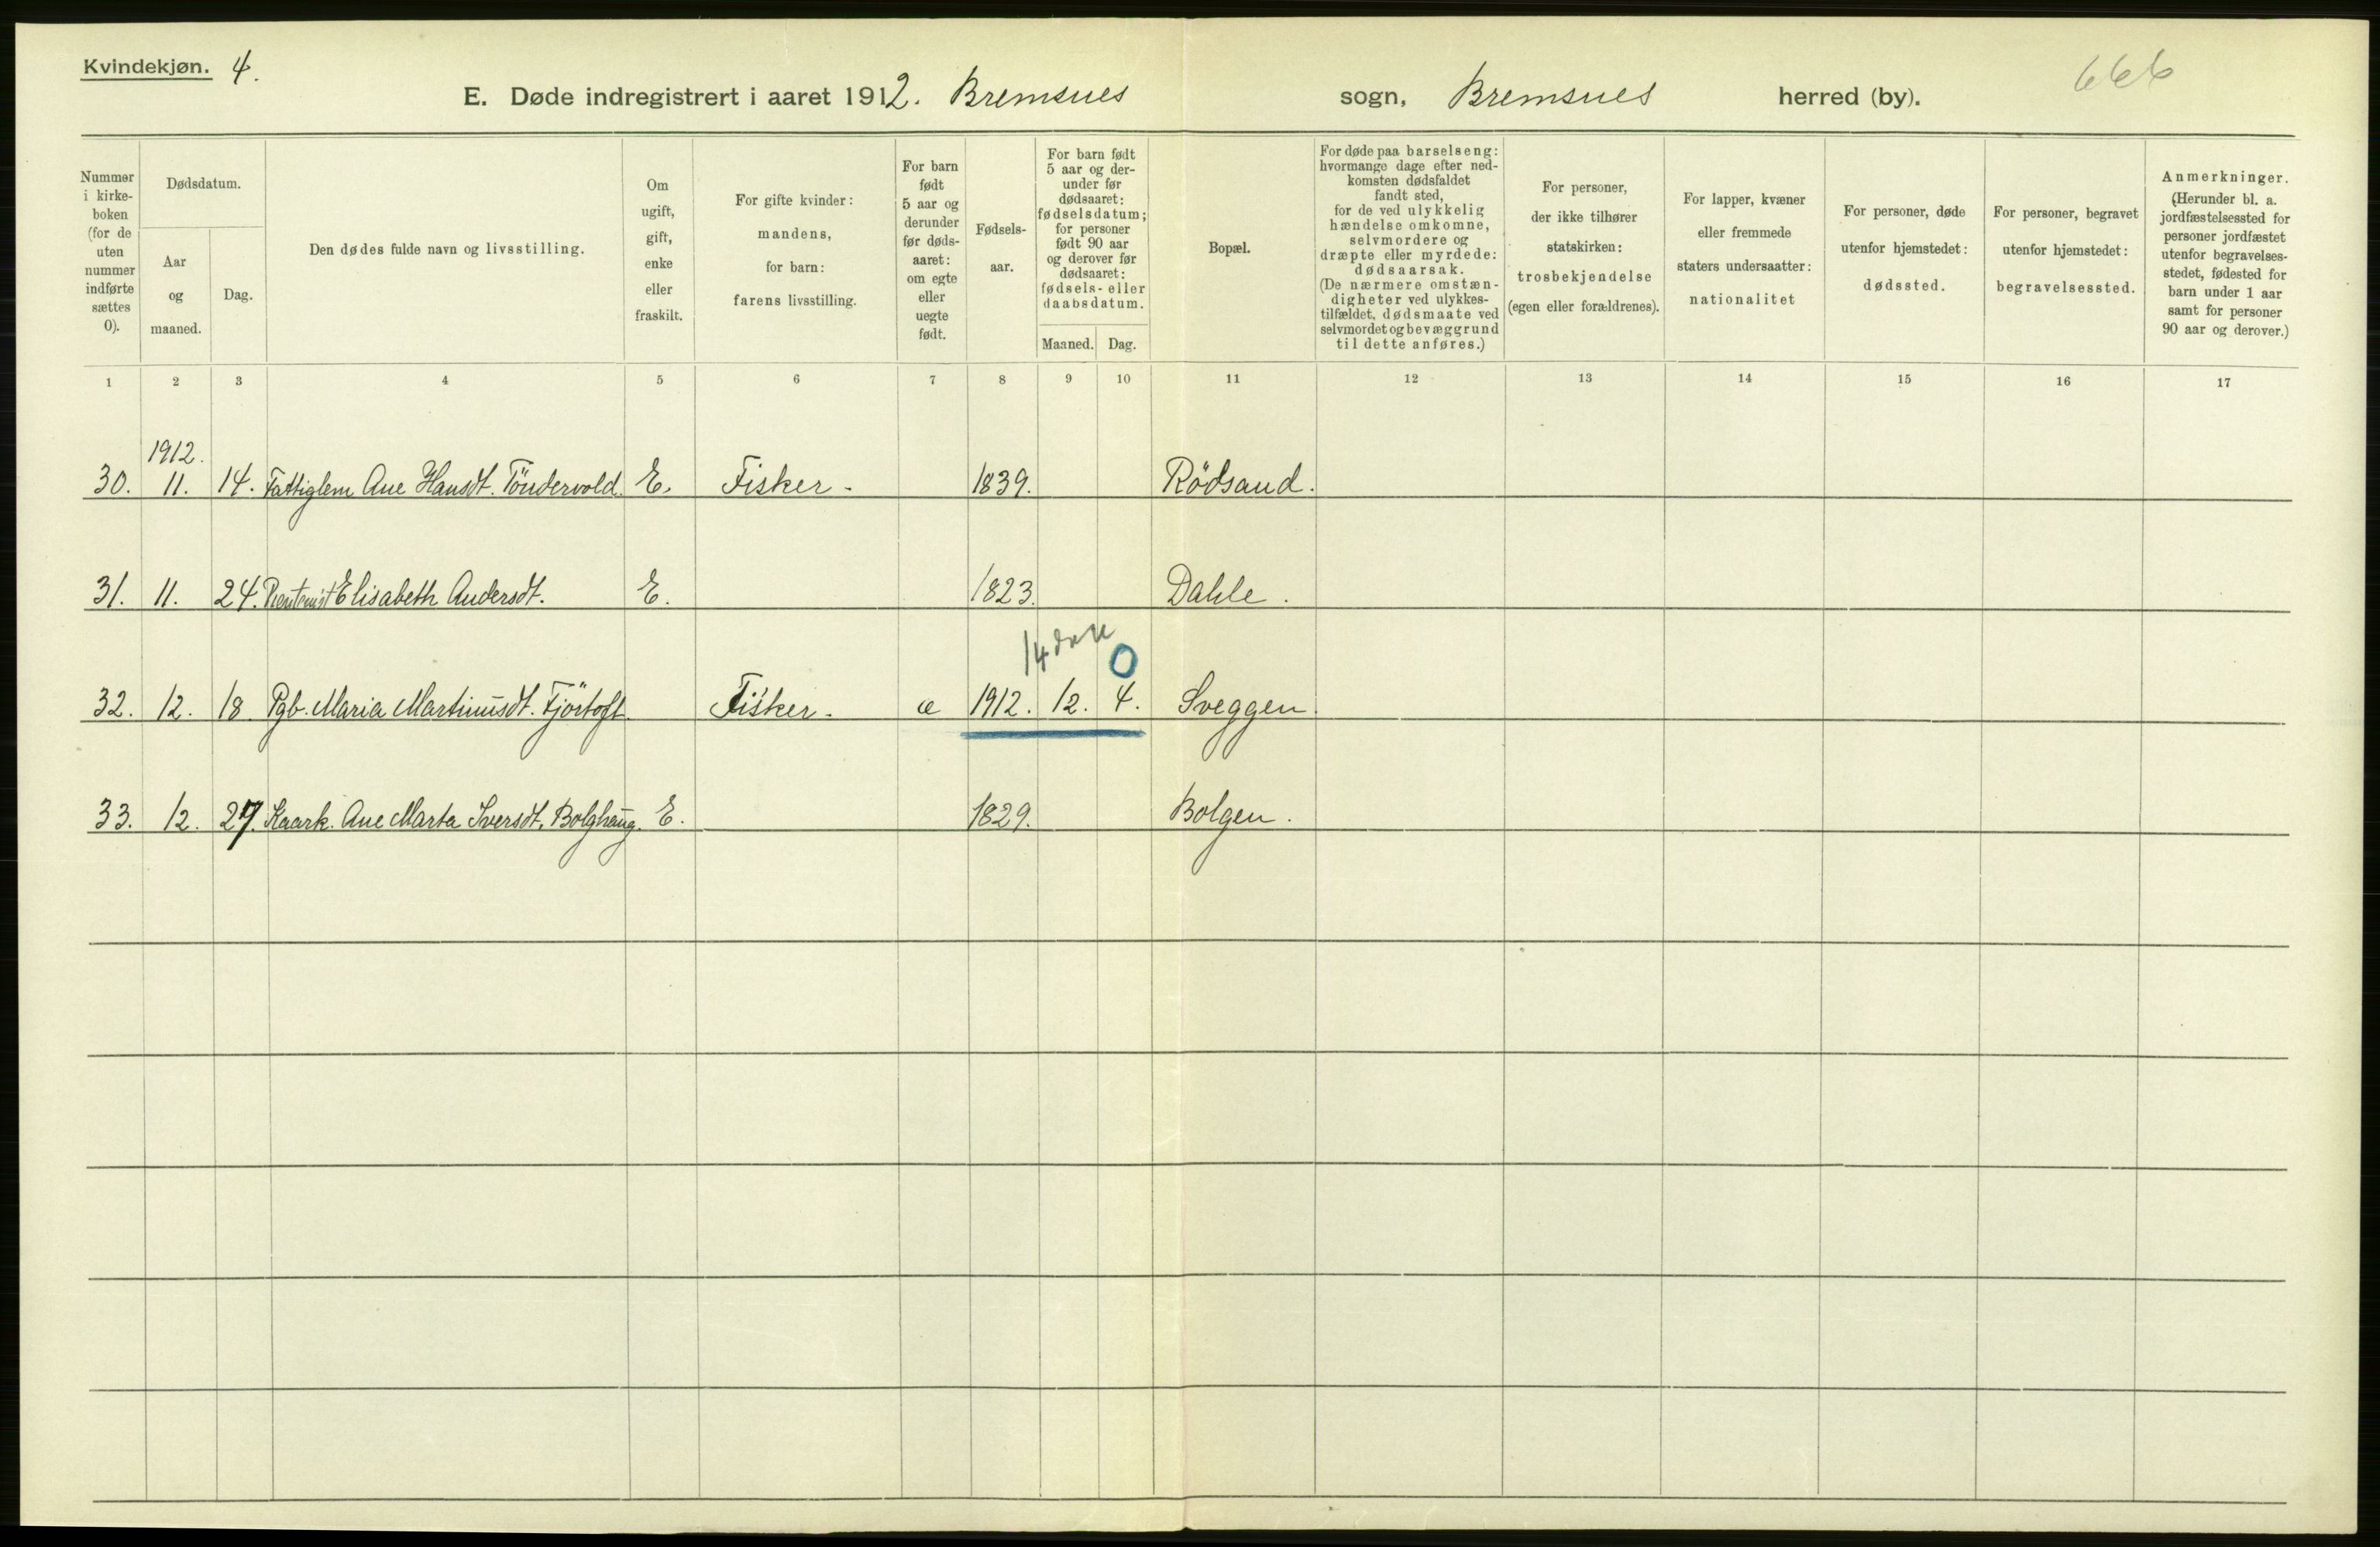 Kvindekjøn. 4.
666
E. Døde indregistrert i aaret 1912. Bremsnes sogn, Bremsnes herred (by).
Nummer i kirke-boken (for de uten nummer indførte sættes 0).
Dødsdatum.
Aar og maaned.
Dag.
Den dødes fulde navn og livsstilling.
Om ugift, gift, enke eller fraskilt.
For gifte kvinder: mandens, for barn: farens livsstilling.
For barn født 5 aar og derunder før døds-aaret: om egte eller uegte født.
Fødsels-aar.
For barn født 5 aar og der-under før dødsaaret: fødselsdatum; for personer født 90 aar og derover før dødsaaret: fødsels- eller daabsdatum.
Maaned. Dag.
Bopæl.
For døde paa barselseng: hvormange dage efter ned-komsten dødsfaldet fandt sted, for de ved ulykkelig hændelse omkomne, selvmordere og dræpte eller myrdede: dødsaarsak. (De nærmere omstæn-digheter ved ulykkes-tilfældet, dødsmaate ved selvmordet og bevæggrund til dette anføres.)
For personer, der ikke tilhører statskirken: trosbekjendelse (egen eller forældrenes).
For lapper, kvæner eller fremmede staters undersaatter: nationalitet
For personer, døde utenfor hjemstedet: dødssted.
For personer, begravet utenfor hjemstedet: begravelsessted.
Anmerkninger. (Herunder bl. a. jordfæstelsessted for personer jordfæstet utenfor begravelses-stedet, fødested for barn under 1 aar samt for personer 90 aar og derover.)
1 2 3 4 5 6 7 8 9 10 11 12 13 14 15 16 17
1912.
30. 11. 14. Fattiglem Ane Hansdt. Töndervold. E. Fisker - 1839. Rödsand.
31. 11. 24. Rentenist Elisabeth Andersdt. E. 1823. Dahle.
14 dage 0
32. 12. 18. Pgb. Maria Martinusdt. Fjörtoft. Fisker - e 1912. 12. 4. Sveggen.
33. 12. 27. Kaark. Ane Marta Iversdt. Bolghaug. E. 1829. Bolgen.